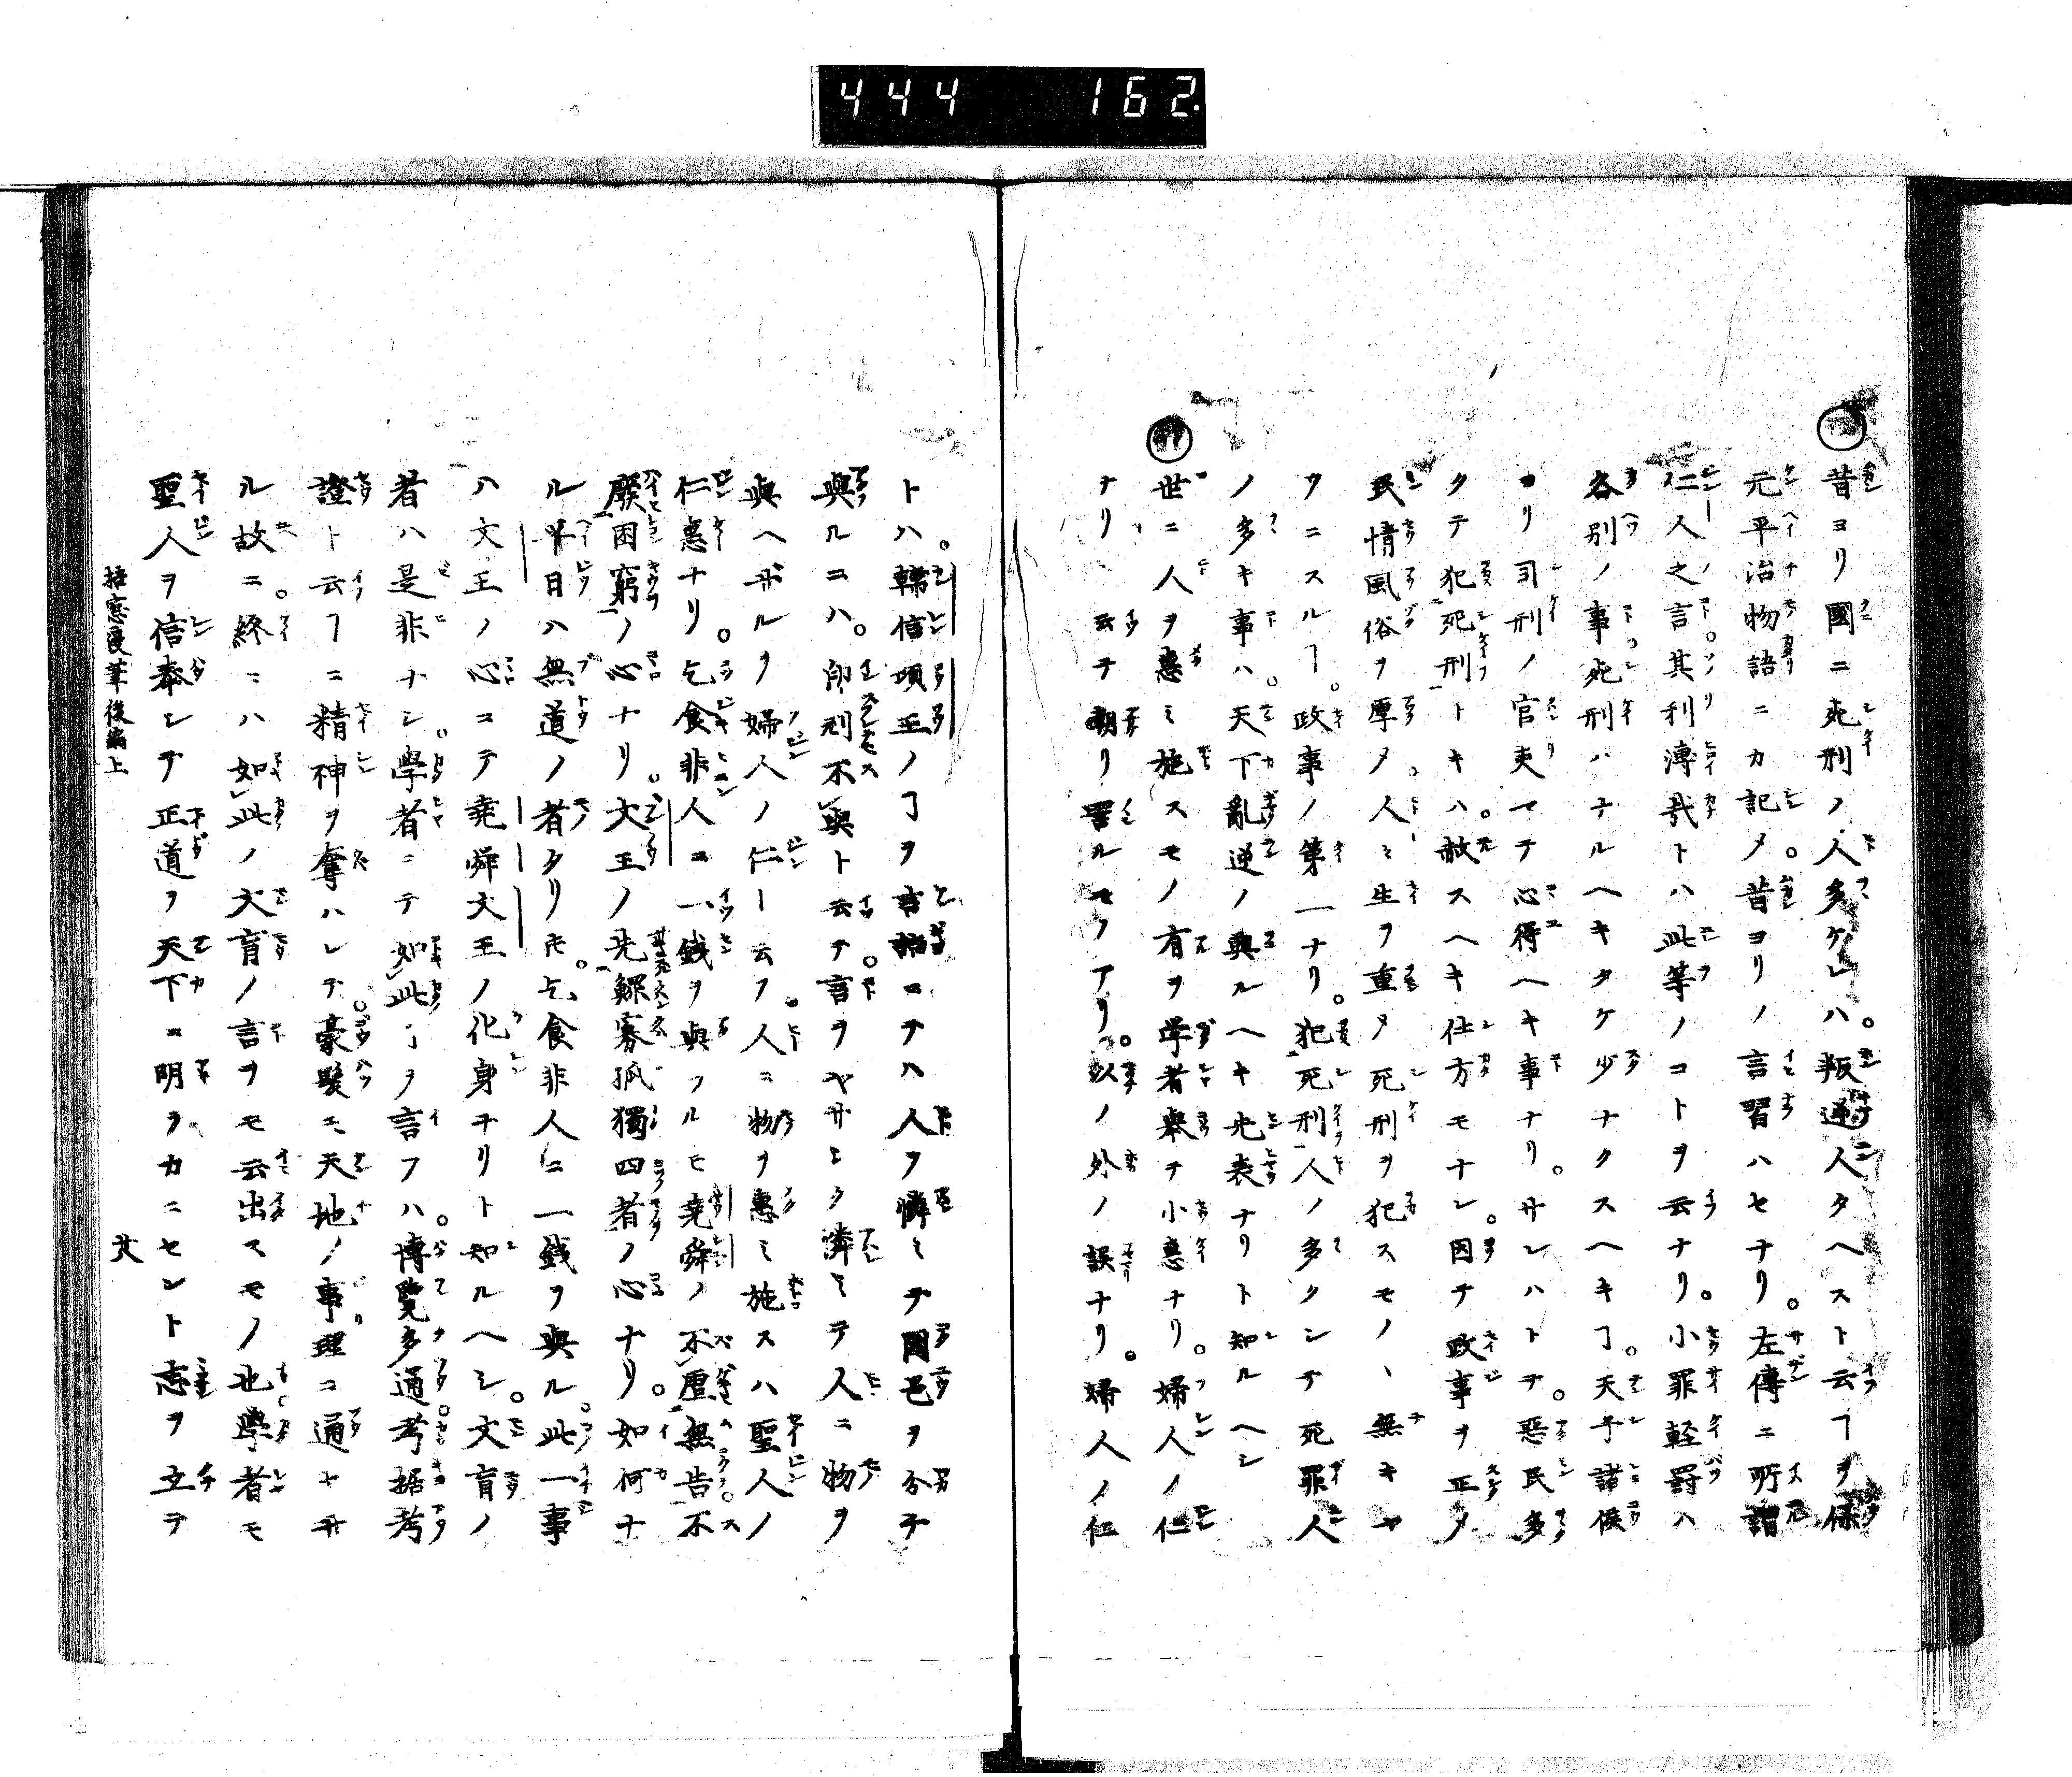 444 162
昔ヨリ國ニ死刑ノ人多ケレハ。叛逆人タヘスト云ヿヲ保
元平治物語ニカ記メ。昔ヨリノ言習ハセナリ。左傳ニ所謂
仁人之言其利溥哉トハ此等ノコトヲ云ナリ。小罪軽罸ハ
各別ノ事死刑ハナルヘキタケ少ナクスヘキヿ。天子諸侯
ヨリ司刑ノ官吏マテ心得ヘキ事ナリ。サレハトテ。惡民多
クテ犯死刑トキハ。赦スヘキ仕方モナシ。因テ政事ヲ正メ
民情風俗ヲ厚メ。人〻生ヲ重メ死刑ヲ犯スモノヽ無キヤ
ウニスルヿ。政事ノ第一ナリ。犯死刑人ノ多クシテ死罪人
ノ多キ事ハ。天下亂逆ノ興ルヘキ兆表ナリト知ルヘシ
世ニ人ヲ惠ミ施スモノ有ヲ学者舉テ小惠ナリ。婦人ノ仁
ナリト云テ嘲リ詈ルモノアリ。以ノ外ノ誤ナリ。婦人ノ仁
トハ。韓信項王ノヿヲ言ニテハ人ヲ憐ミテ國邑ヲ分チ
與ルニハ。印刓不與ト云テ。言ヲヤサシク憐ミテ人ニ物ヲ
與ヘザルヲ婦人ノ仁ト云フ。人ニ物ヲ惠ミ施スハ聖人ノ
仁惠ナリ。乞食非人ニ一銭ヲ與フルモ堯舜ノ不虐無告不
廢困窮ノ心ナリ。文王ノ先鰥寡孤獨四者ノ心ナリ。如何ナ
ル平日ハ無道ノ者タリモ。乞食非人ニ一銭ヲ與ル。此一事
ハ文王ノ心ニテ堯舜文王ノ化身ナリト知ルヘシ。文盲ノ
者ハ是非ナシ。學者ニテ如此ヿヲ言フハ。博覽多通。考据考
證ト云フヿニ精神ヲ奪ハレテ。豪髮モ天地ノ事理ニ通セサ
ル故ニ。終ニハ如此ノ文盲ノ言ヲモ云出スモノ也。學者モ
聖人ヲ信奉シテ正道ヲ天下ニ明ラカニセント志ヲ立テ
梧窓漫筆後編上 廿八